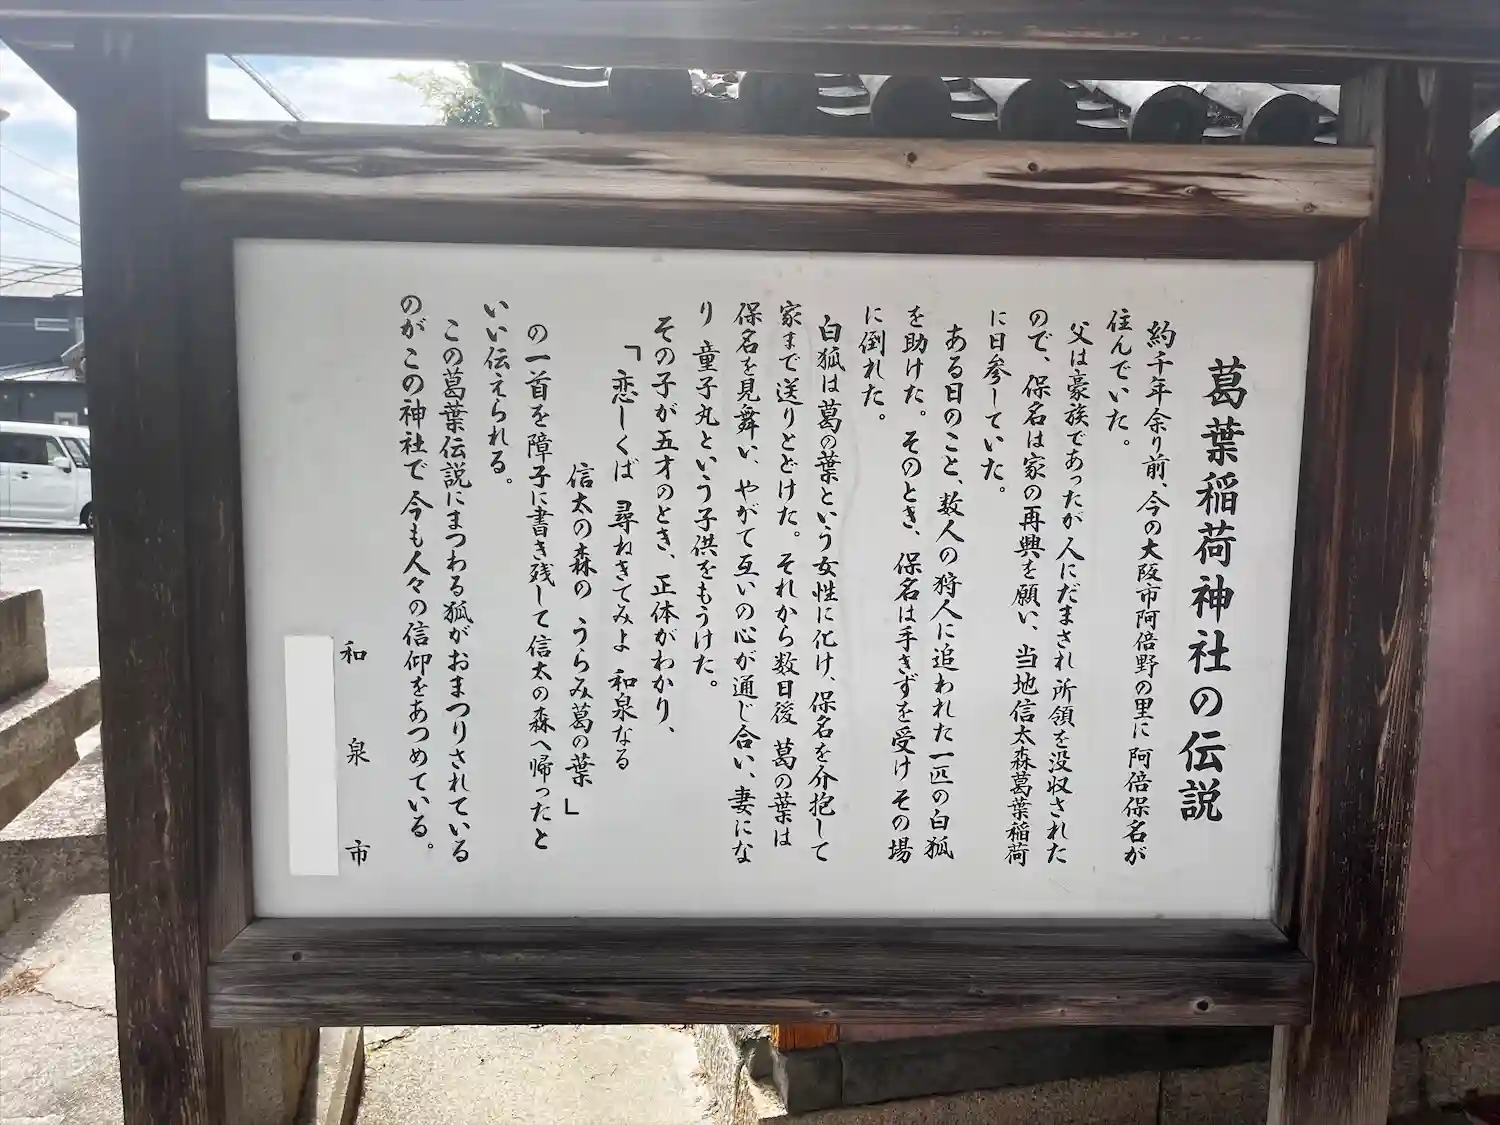 葛葉稲荷神社の伝説
約千年余り前、今の大阪市阿倍野の里に 阿倍保名が
住んでいた。
父は豪族であったが人にだまされ 所領を没収された
ので、保名は家の再興を願い、当地信太森葛葉稲荷
に日参していた。
ある日のこと、数人の狩人に追われた一匹の白狐
を助けた。そのとき、保名は手きずを受け その場
に倒れた。
白狐は葛の葉という女性に化け、保名を介抱して
家まで送りとどけた。それから数日後 葛の葉は
保名を見舞い、やがて互いの心が通じ合い、妻にな
り 童子丸という子供をもうけた。
その子が五才のとき、正体がわかり、
「恋しくば 尋ねきてみよ 和泉なる
信太の森の うらみ葛の葉」
の一首を障子に書き残して信太の森へ帰ったと
いい伝えられる。
この葛葉伝説にまつわる狐がおまつりされている
のがこの神社で今も人々の信仰をあつめている。
和泉市